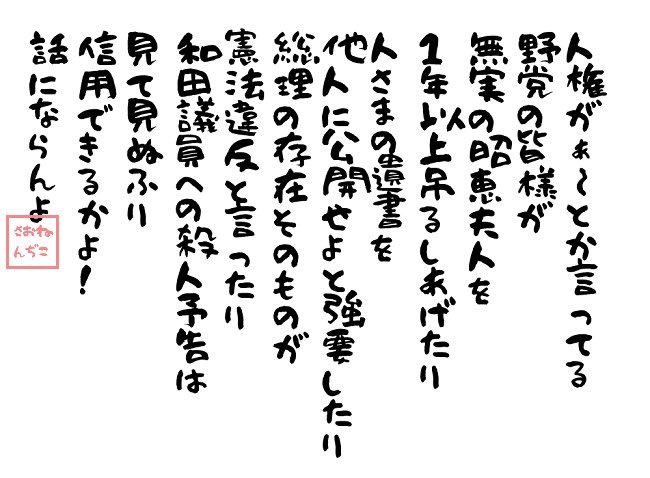 人権がぁ〜とか言ってる
野党の皆様が
無実の昭恵夫人を
1年以上吊るしあげたり
人さまの遺書を
他人に公開せよと強要したり
総理の存在そのものが
憲法違反と言ったり
和田議員への殺人予告は
見て見ぬふり
信用できるかよ!
話にならんよ
さおね
んぢこ